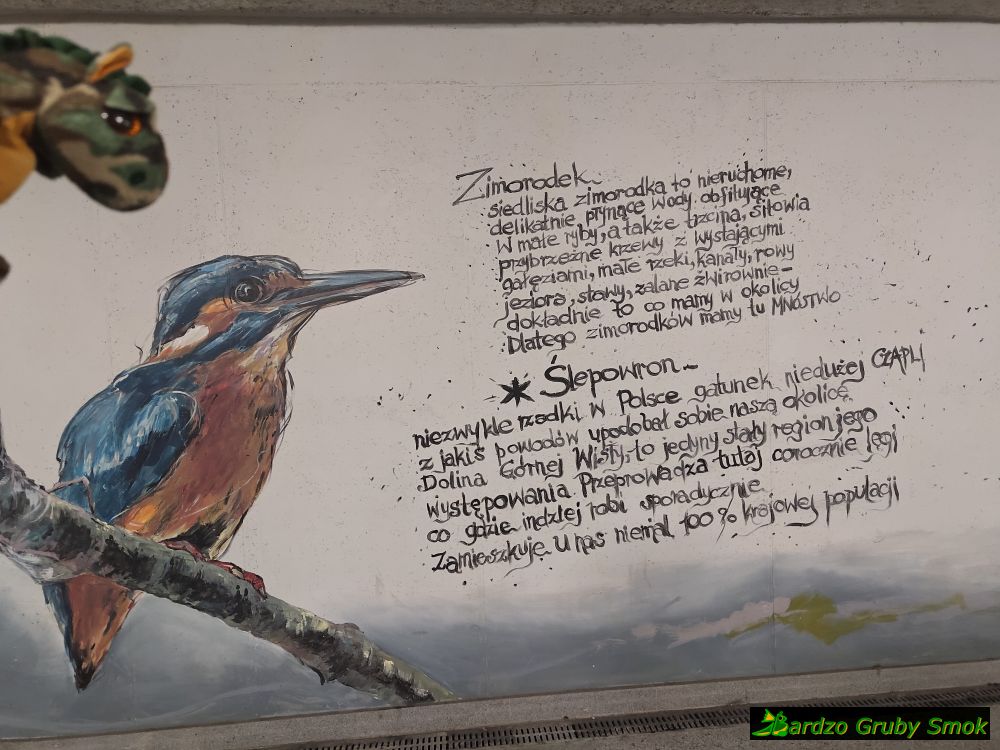 Zimorodek
siedliska zimorodka to nieruchome,
delikatnie płynące wody obfitujące
w małe ryby, a także trzcina, sitowia
przybrzeżne krzewy z wystającymi
gałęziami, małe rzeki, kanały, rowy
jeziora, stawy, zalane żwirownie-
dokładnie to co mamy w okolicy
Dlatego zimorodków mamy tu MNÓSTWO
* Ślepowron-
niezwykle rzadki w Polsce gatunek niedużej CZAPLI
z jakiś powodów upodobał sobie naszą okolicę.
Dolina Górnej Wisły, to jedyny stały region jego
występowania. Przeprowadza tutaj corocznie lęgi
co gdzie indziej robi sporadycznie
Zamieszkuje u nas niemal 100% krajowej populacji
Bardzo Gruby Smok